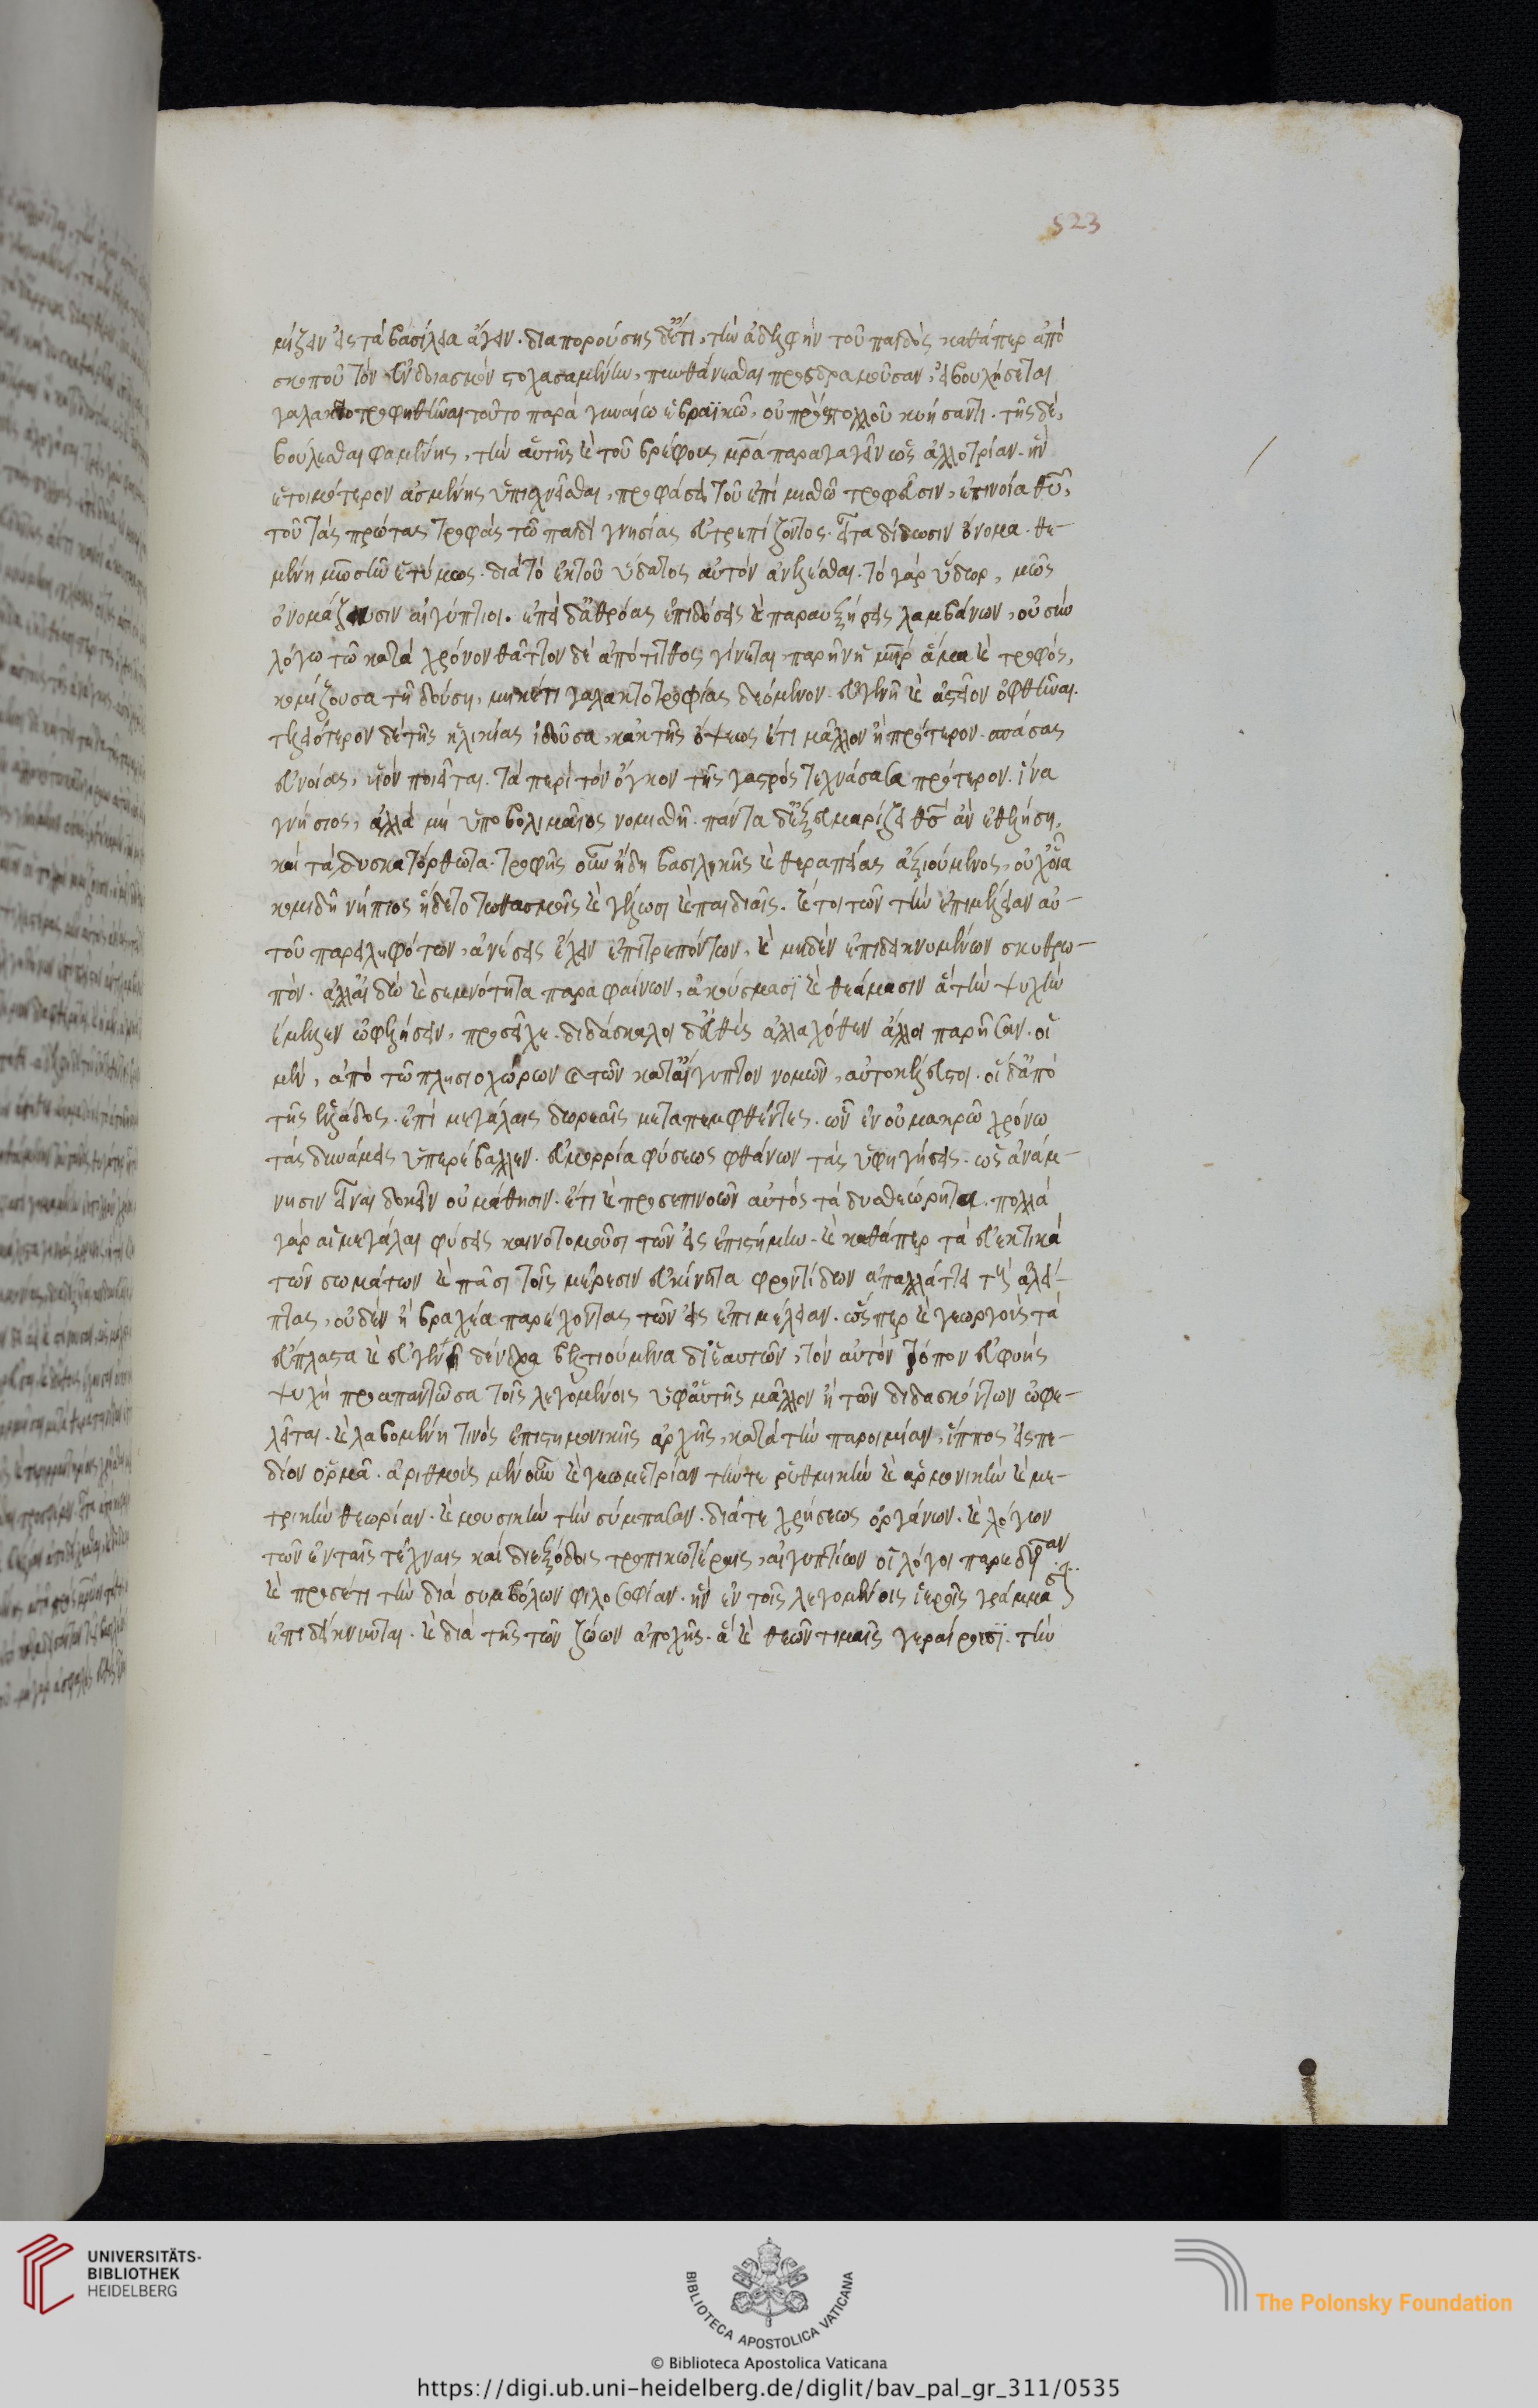 523
μίζειν εἰς τὰ βασίλεια ἄγειν. διαπορούσης δ' ἔτι, τὴν ἀδελφὴν τοῦ παιδὸς καθάπερ ἀπὸ
σκοποῦ τὸν ἐνδοιασμὸν στοχασαμένην, πυνθάνεσθαι προσδραμοῦσαν, εἰ βουλήσεται
γαλακτοτροφηθῆναι τοῦτο παρὰ γυναίω ἑβραϊκῶ, οὐ πρὸ πολλοῦ κυήσαντι. τῆς δὲ,
βούλεσθαι φαμένης, τὴν αὑτῆς καὶ τοῦ βρέφους μρα παραγαγεῖν ὡς ἀλλοτρίαν. ἣν
ἑτοιμότερον ἀσμένης ὑπισχνεῖσθαι, προφάσει τοῦ ἐπὶ μισθῶ τροφεύσειν, ἐπινοία θυ,
τοῦ τὰς πρώτας τροφὰς τῶ παιδὶ γνησίας εὐτρεπίζοντος. εἶτα δίδωσιν ὄνομα. θε-
μένη μωσῆν ἐτύμως. διὰ τὸ ἐκ τοῦ ὕδατος αὐτὸν ἀνελέσθαι. τὸ γὰρ ὕδωρ, μῶς
ὀνομάζουσιν αἰγύπτιοι. ἐπεὶ δ' ἀθρόας ἐπιδόσεις καὶ παραυξήσεις λαμβάνων, οὐ σὺν
λόγω τῶ κατὰ χρόνον θᾶττον δὲ ἀπότιτθος γίνεται, παρῆν ἡ μηρ ἅμα καὶ τροφός,
κομίζουσα τῆ δούση, μηκέτι γαλακτοτροφίας δεόμενον. εὐγενῆ καὶ ἀστεῖον ὀφθῆναι.
τελειότερον δὲ τῆς ἡλικίας ἰδοῦσα, κἀκ τῆς ὄψεως ἔτι μᾶλλον ἢ πρότερον. σπάσασα
εὐνοίας, υἱὸν ποιεῖται. τὰ περὶ τὸν ὄγκον τῆς γαστρὸς τεχνάσασα πρότερον. ἵνα
γνήσιος, ἀλλὰ μὴ ὑποβολιμαῖος νομισθῆ. πάντα δ' ἐξευμαρίζει θς ἃ ἂν ἐθελήση,
καὶ τὰ δυσκατόρθωτα. τροφῆς οὖν ἤδη βασιλικῆς καὶ θεραπείας ἀξιούμενος, οὐχ οἷα
κομιδῆ νήπιος ἥδετο τωθασμοῖς καὶ γέλωσι καὶ παιδιαῖς. καί τοι τῶν τὴν ἐπιμέλειαν αὐ-
τοῦ παρειληφότων, ἀνέσεις ἔχειν ἐπιτρεπόντων, καὶ μηδὲν ἐπιδεικνυμένων σκυθρω-
πόν. ἀλλ' αἰδῶ καὶ σεμνότητα παραφαίνων, ἀκούσμασι καὶ θεάμασιν ἃ τὴν ψυχὴν
ἔμελλεν ὠφελήσειν, προσεῖχε. διδάσκαλοι δ' εὐθὺς ἀλλαχόθεν ἄλλοι παρῆσαν. οἱ
μὲν, ἀπὸ τῶ πλησιοχώρων καὶ τῶν κατ' αἴγυπτον νομῶν, αὐτοκέλευστοι. οἱ δ' ἀπὸ
τῆς ἑλλάδος. ἐπὶ μεγάλαις δωρεαῖς μεταπεμφθέντες. ὧν ἐν οὐ μακρῶ χρόνω
τὰς δυνάμεις ὑπερέβαλλεν. εὐμοιρία φύσεως φθάνων τὰς ὑφηγήσεις. ὡς ἀνάμ-
νησιν εἶναι δοκεῖν οὐ μάθησιν. ἔτι καὶ προσεπινοῶν αὐτὸς τὰ δυσθεώρητα. πολλὰ
γὰρ αἱ μεγάλαι φύσεις καινοτομοῦσι τῶν εἰς ἐπιστήμην. καὶ καθάπερ τὰ εὐεκτικὰ
τῶν σωμάτων καὶ πᾶσι τοῖς μέρεσιν εὐκίνητα φροντίδων ἀπαλλάττει τοὺς ἀλεί-
πτας, οὐδὲν ἢ βραχέα παρέχοντας τῶν εἰς ἐπιμέλειαν. ὥσπερ καὶ γεωργοὺς τὰ
εὔπλαστα καὶ εὐγενῆ δένδρα βελτιούμενα δι' ἑαυτῶν, τὸν αὐτὸν τρόπον εὐφυὴς
ψυχὴ προαπαντῶσα τοῖς λεγομένοις ὑφ' αὑτῆς μᾶλλον ἢ τῶν διδασκόντων ὠφε-
λεῖται. καὶ λαβομένη τινὸς ἐπιστημονικῆς ἀρχῆς, κατὰ τὴν παροιμίαν, ἵππος εἰς πε-
δίον ὁρμᾶ. ἀριθμοὺς μὲν οὖν καὶ γεωμετρίαν τήν τε ῥυθμικὴν καὶ ἁρμονικὴν καὶ με-
τρικὴν θεωρίαν. καὶ μουσικὴν τὴν σύμπασαν. διά τε χρήσεως ὀργάνων. καὶ λόγων
τῶν ἐν ταῖς τέχναις καὶ διεξόδοις τροπικωτέροις, αἰγυπτίων οἱ λόγιοι παρεδίδοσαν
καὶ προσέτι τὴν διὰ συμβόλων φιλοσοφίαν. ἣν ἐν τοῖς λεγομένοις ἱεροῖς γράμμασιν
ἐπιδείκνυνται. καὶ διὰ τῆς τῶν ζώων ἀποχῆς. ἃ καὶ θεῶν τιμαῖς γεραίρουσι. τὴν
UNIVERSITÄTS-
BIBLIOTHEK
HEIDELBERG
BIBLIOTECA APOSTOLICA VATICANA
The Polonsky Foundation
© Biblioteca Apostolica Vaticana
https://digi.ub.uni-heidelberg.de/diglit/bav_pal_gr_311/0535